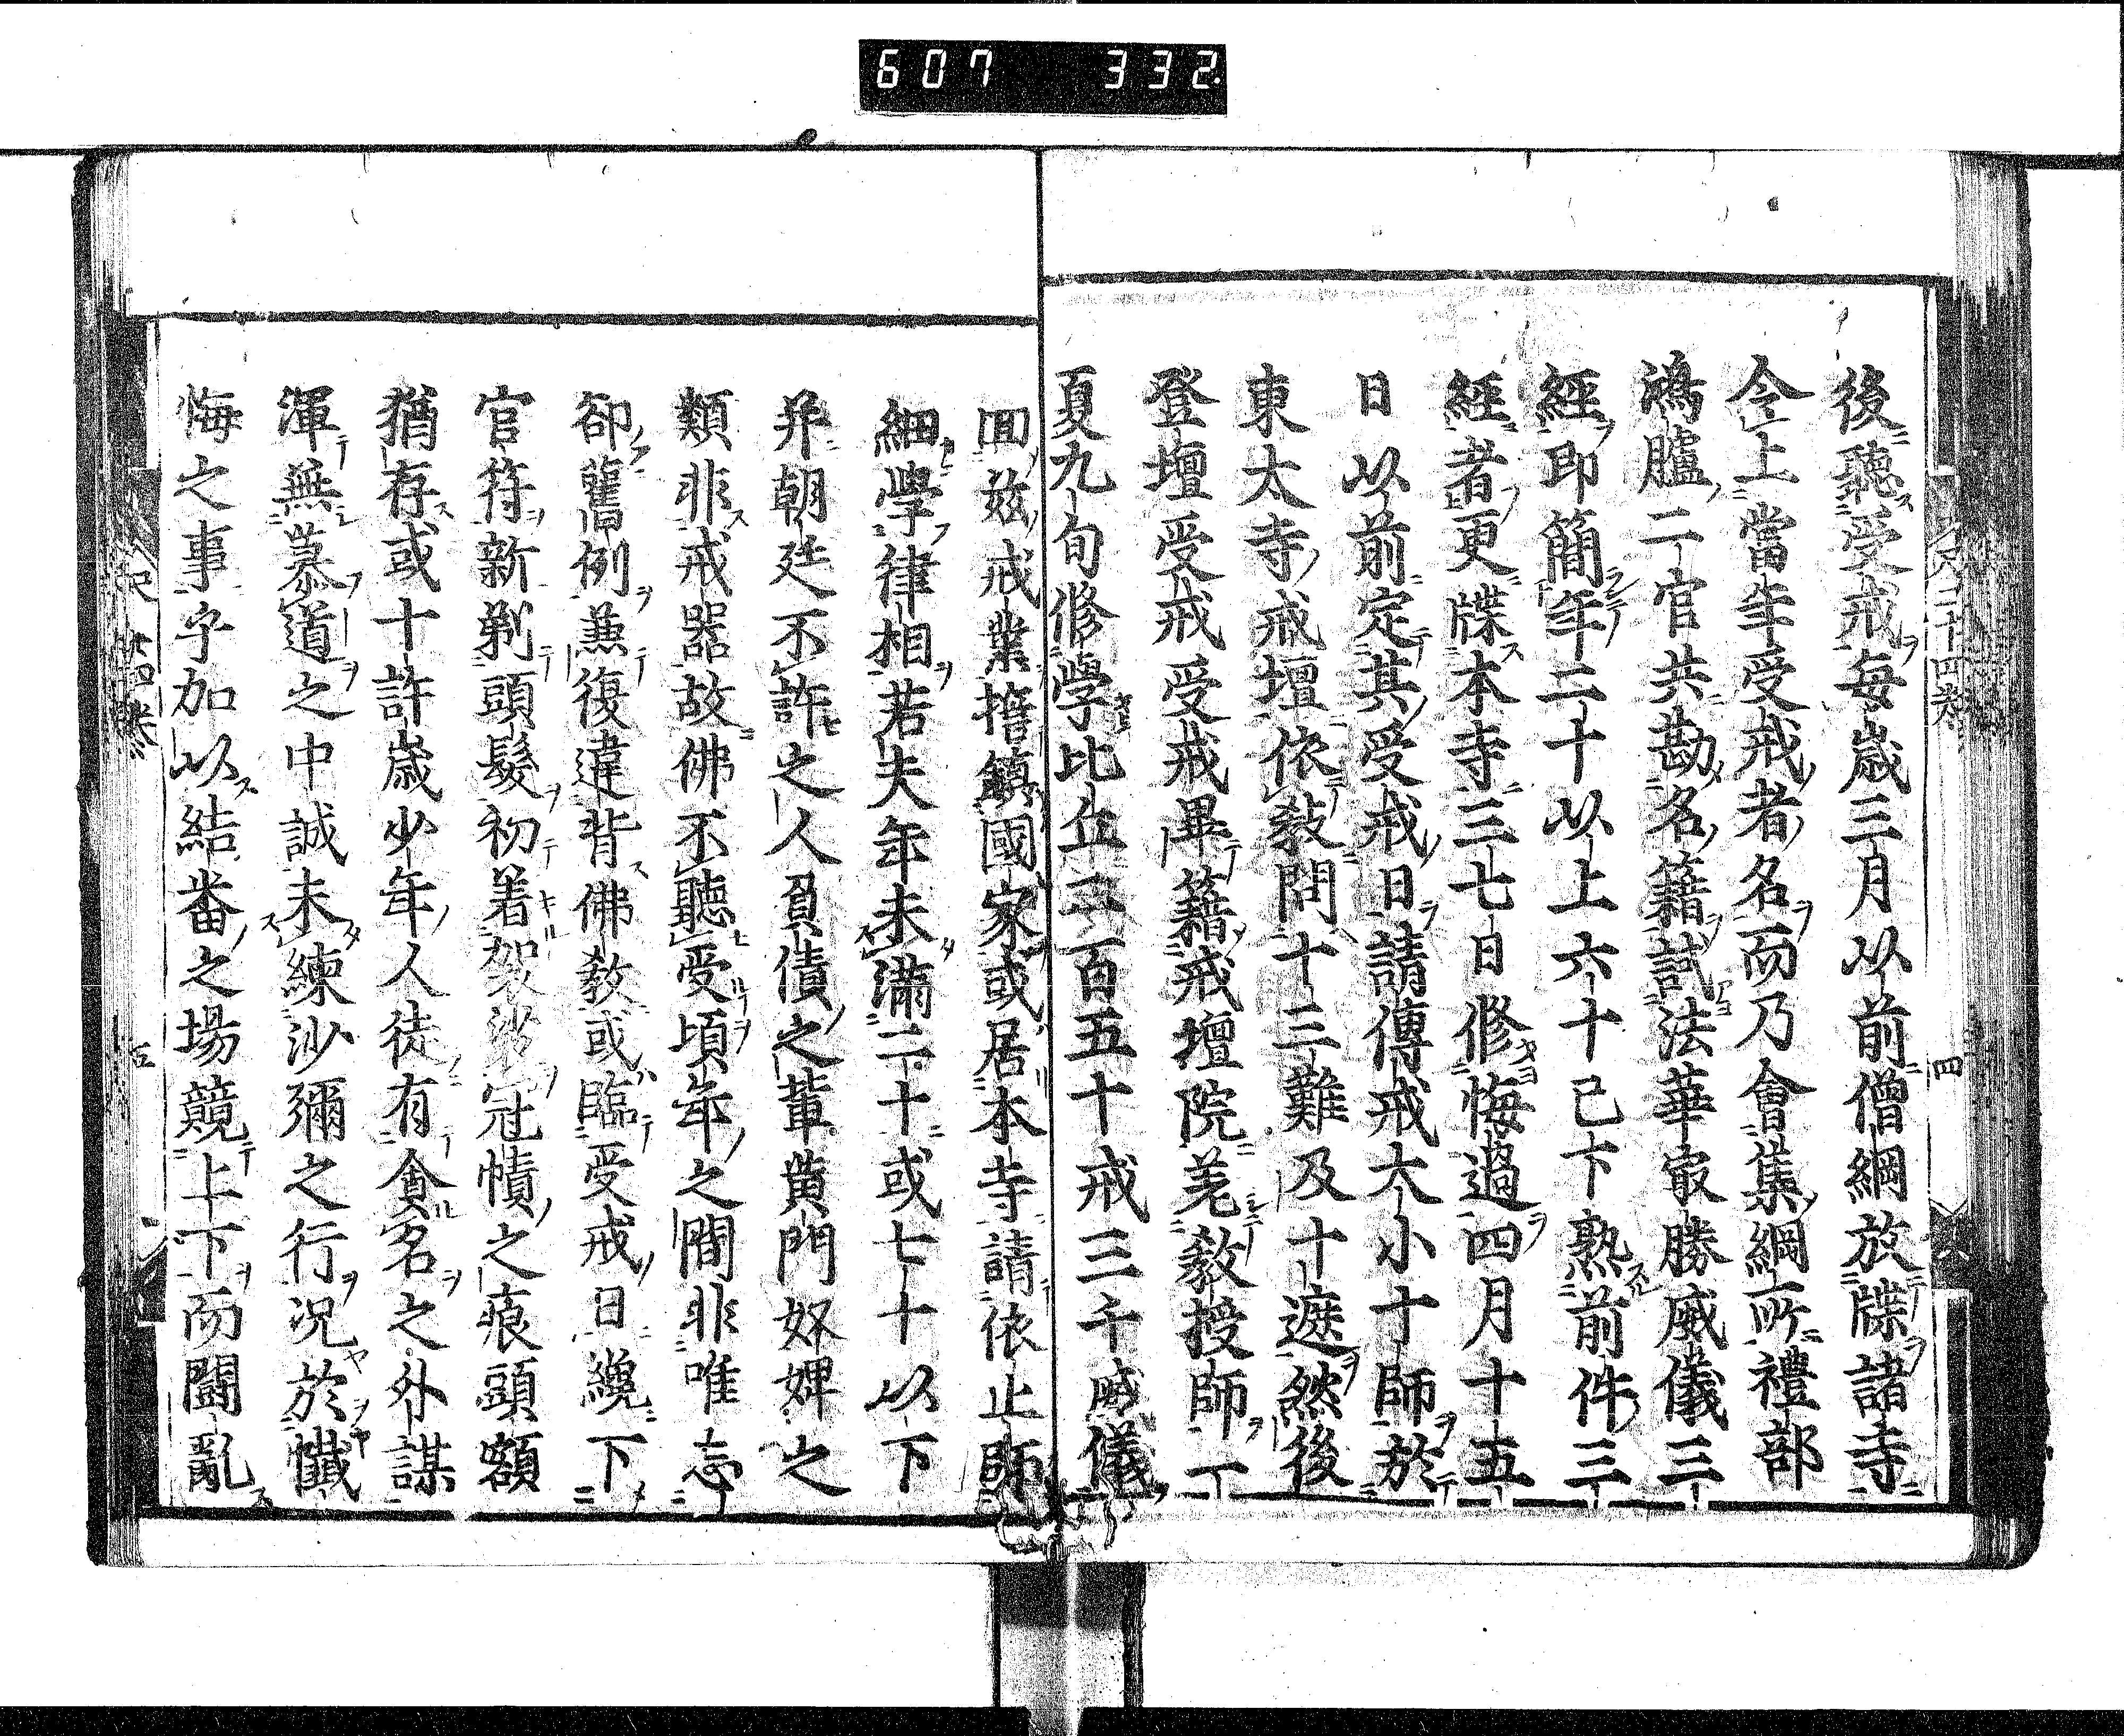 607 332
後聽受戒每歲三月以前僧綱放牒諸寺
令上當年受戒者名而乃會集綱所禮部
鴻臚二官共勘名籍試法華最勝威儀三
經即簡年二十以上六十已下熟前件三
經者更牒本寺三七日修悔過四月十五
日以前定其受戒日請傳戒大小十師於
東大寺戒壇依敎問十三難及十遮然後
登壇受戒受戒畢籍戒壇院差敎授師一
夏九旬修學比丘二百五十戒三千威儀
回茲戒業擔鎮國家或居本寺請依止師
細學律相若夫年未滿二十或七十以下
并朝廷不許之人負債之輩黃門奴婢之
類非戒器故佛不聽受頃年之間非唯忘
卻舊例兼復違背佛敎或臨受戒日纔下
官符新剃頭髮初着袈裟冠幘之痕頭額
猶存或十許歲少年人徒有貪名之外謀
渾無慕道之中誠未練沙彌之行況於懺
悔之事乎加以結番之場競上下而鬪亂